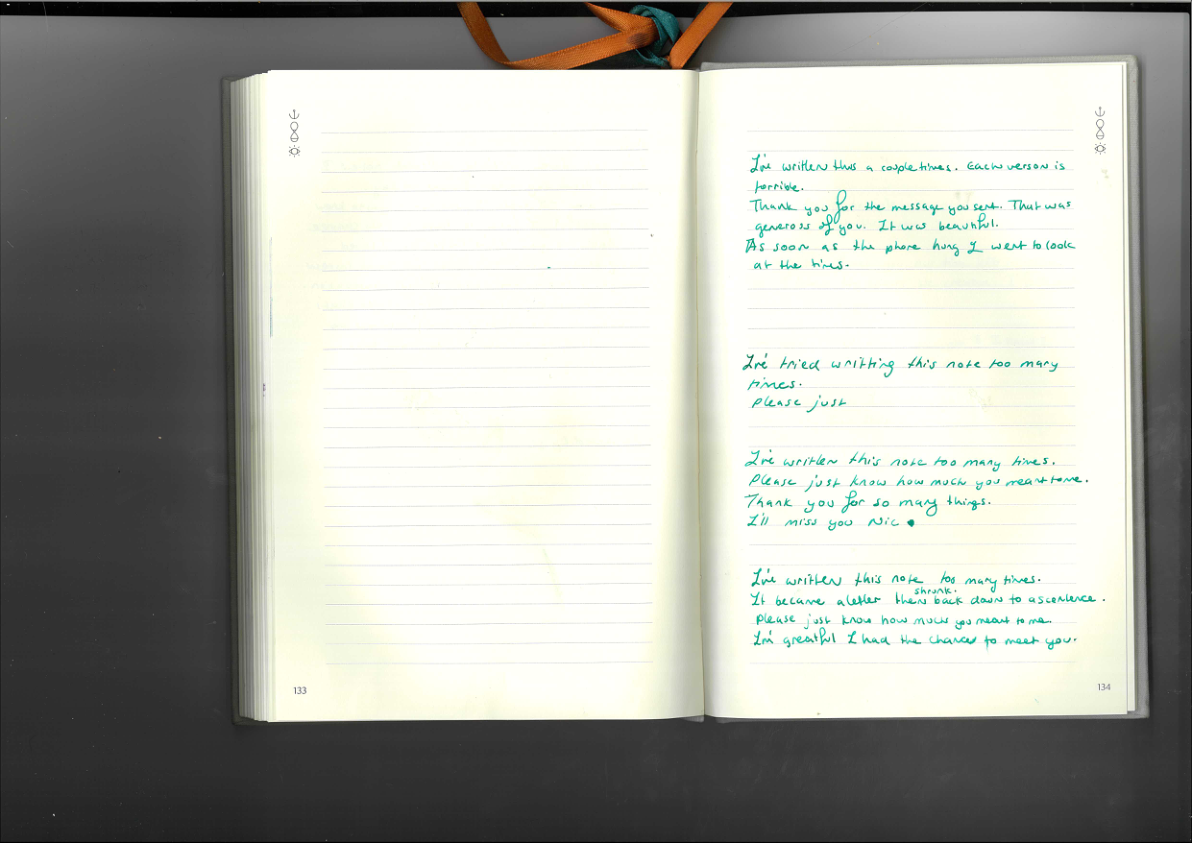 I've written this a couple times. Each verson is
torrible.
Thank you for the message you sent. That was
geneross of you. It was beautiful.
As soon as the phone hung I went to look
at the tires.
I've tried writting this note too many
times.
Please just
I've written this note too many times.
Please just know how much you meant to me.
Thank you for so many things.
I'll miss you Nic
I've written this note too many times.
shrunk.
It became a letter then back down to a scentence.
Please just know how much you meant to me.
I'm greatful I had the chance to meet you.
133
134